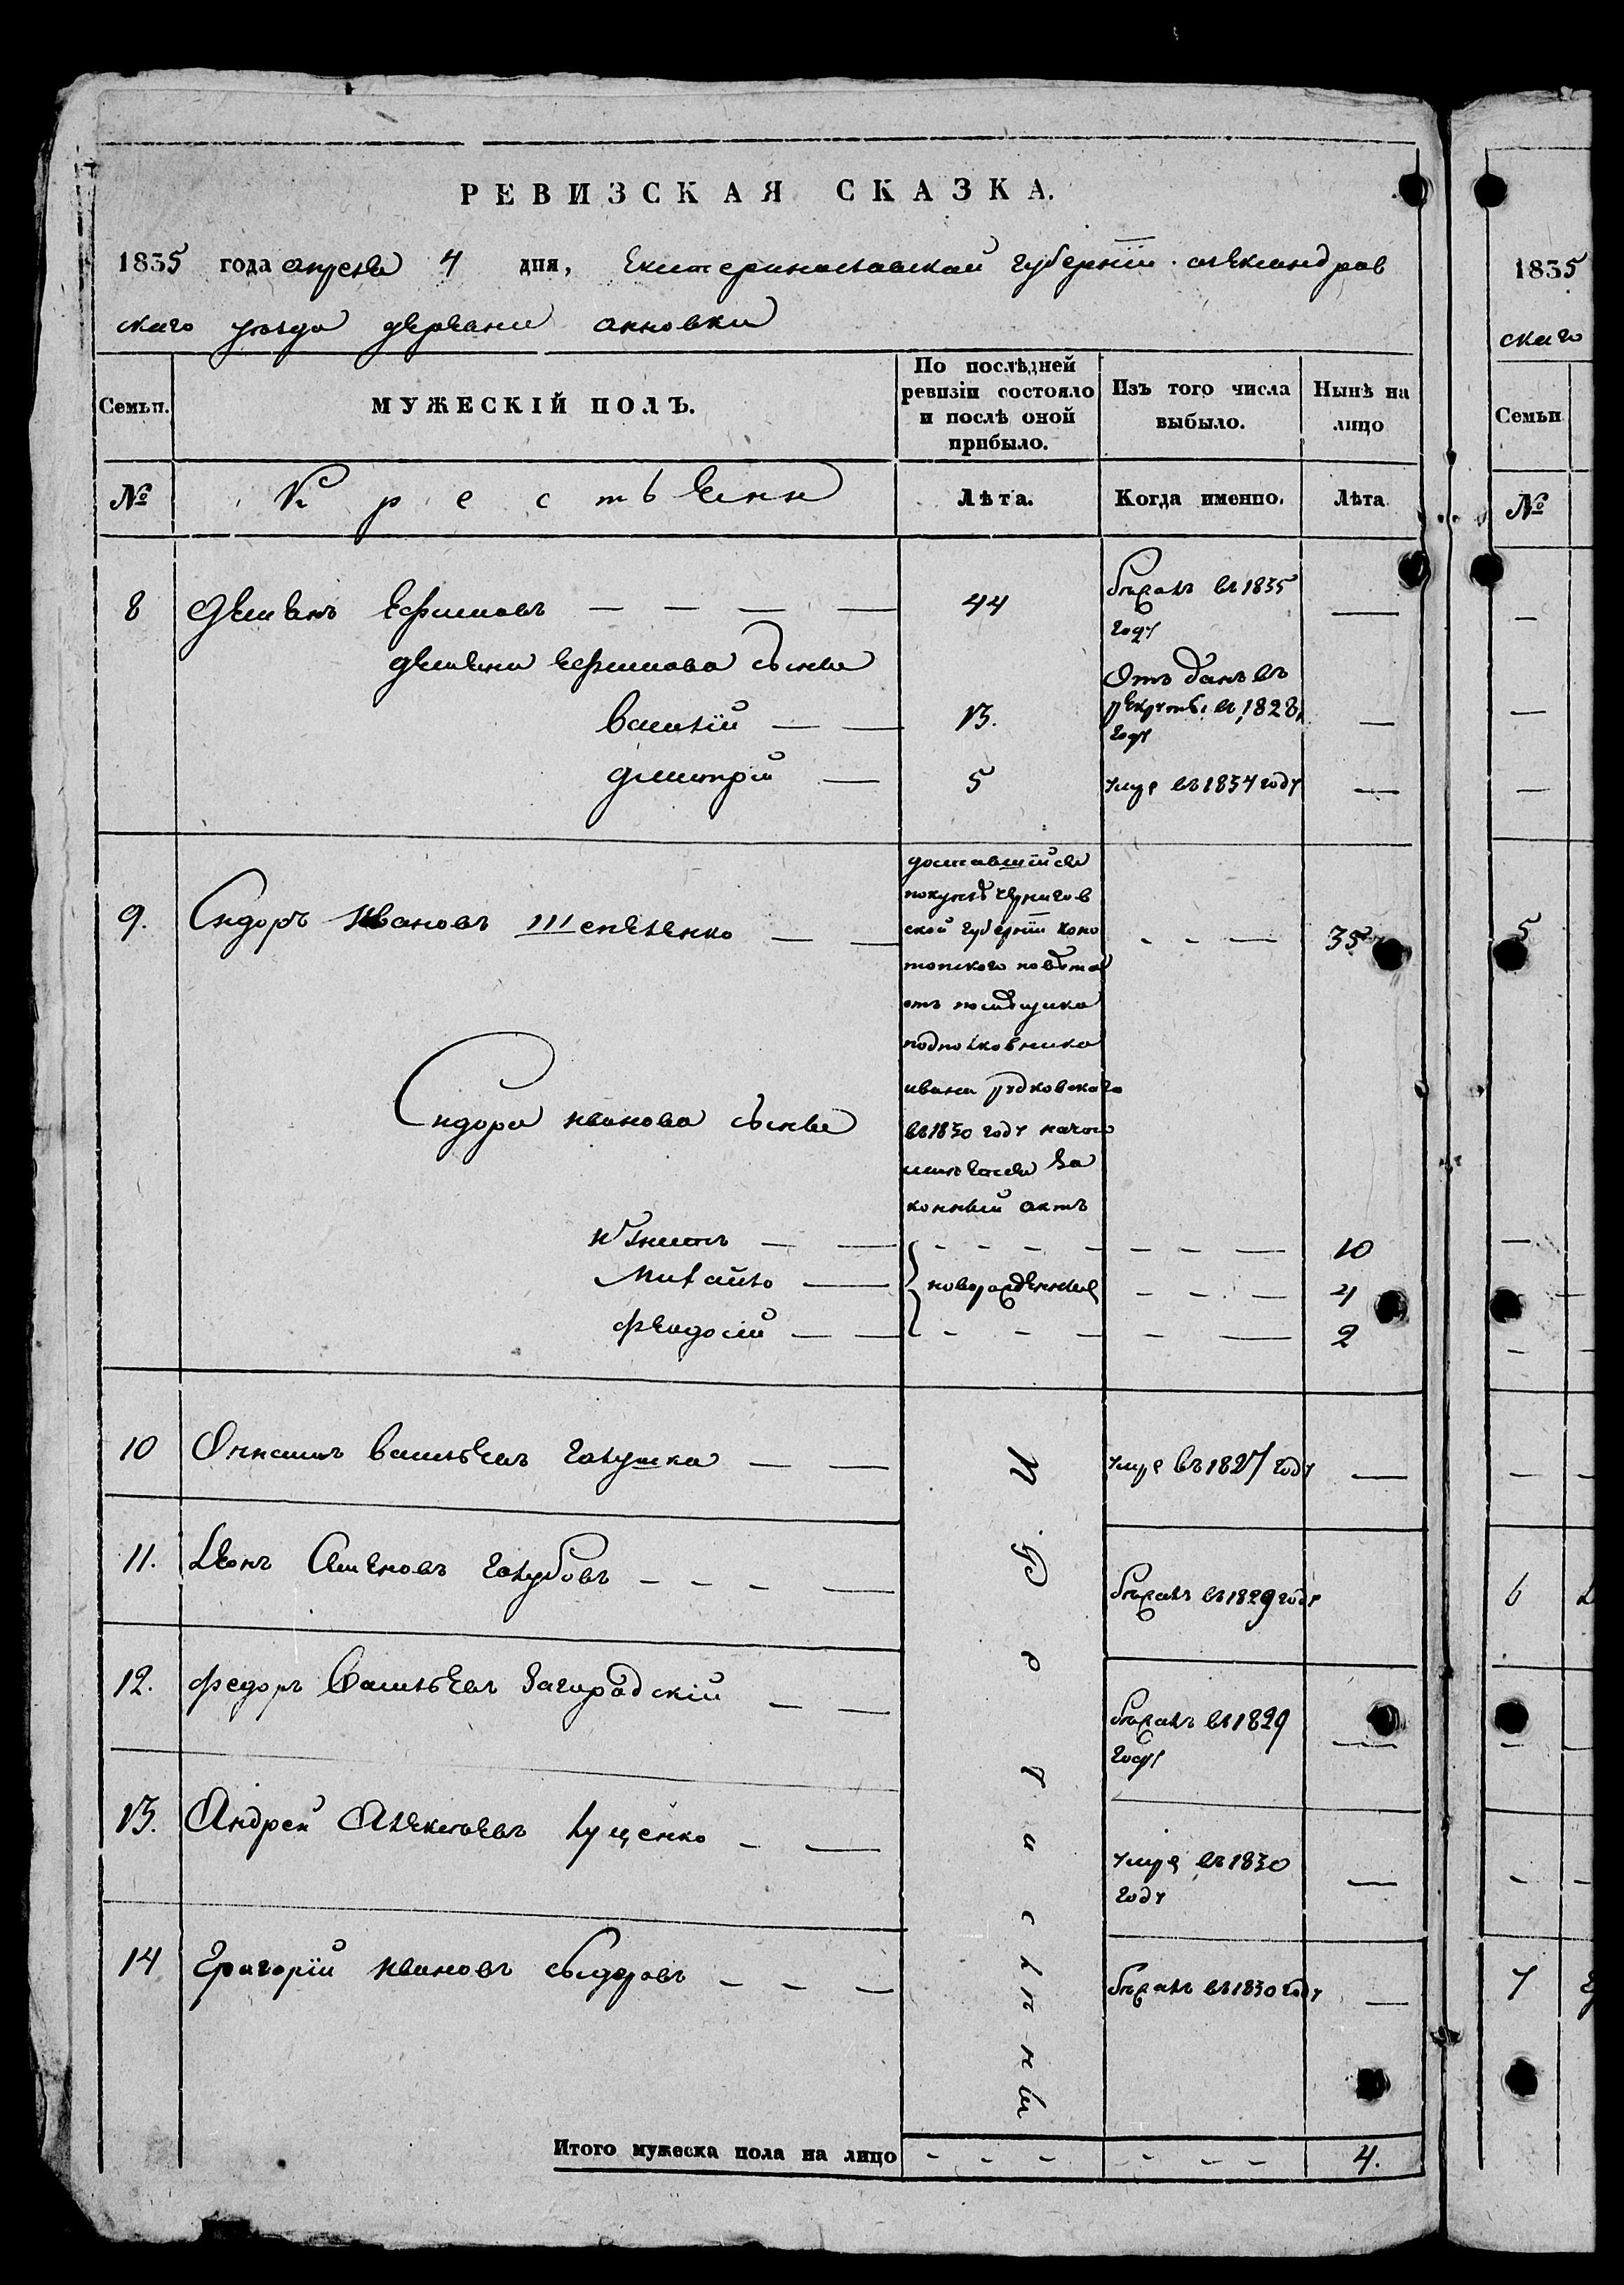 РЕВИЗСКАЯ СКАЗКА.
1835 года апреля 4 дня, Екатеринославской губернiи александров
скаго уезда деревни анновки
Семьи.
МУЖЕСКІЙ ПОЛЪ.
По послѣдней
ревизіи состояло
и послѣ оной
прибыло.
Изъ того числа
выбыло.
Нынѣ на
лицо
№
Крестьянн
Лѣта.
Когда именно.
Лѣта
8 Демьянъ Ефимовъ — — — — 44 бежалъ въ 1835
году —
Демьяна Ефимова сынья
Василiй — — 13. Отъ данъ въ
рекруты въ 1828
году —
Дмитрiй — 5 умре въ 1834 году —
9. Сидоръ Ивановъ Шепеленко — — 35
доставшiйся
покупкѣ чернигов
ской губернiи коно
топского повѣта
отъ помѣщика
подполковника
ивана рудковского
въ 1830 году начто
имѣется за
конный актъ
Сидора иванова сынья
— — 10
Михайло — новорожденныя — — 4
феодосiй — — 2
10 васильевъ галушка — — умре въ 1827 году —
11. Леонъ Семеновъ голубовъ — — — — бежалъ въ 1829 году
12. федоръ Васильевъ Загородскiй — — бежалъ въ 1829
году —
13. Андрей Алексѣевъ Луценко — — умре въ 1830
году —
14 Григорiй ивановъ сидоровъ — — — бежалъ въ 1830 году —
Итого мужеска пола на лицо - - - - - - 4.
1835
скаго
Семьи
№
5
6
7